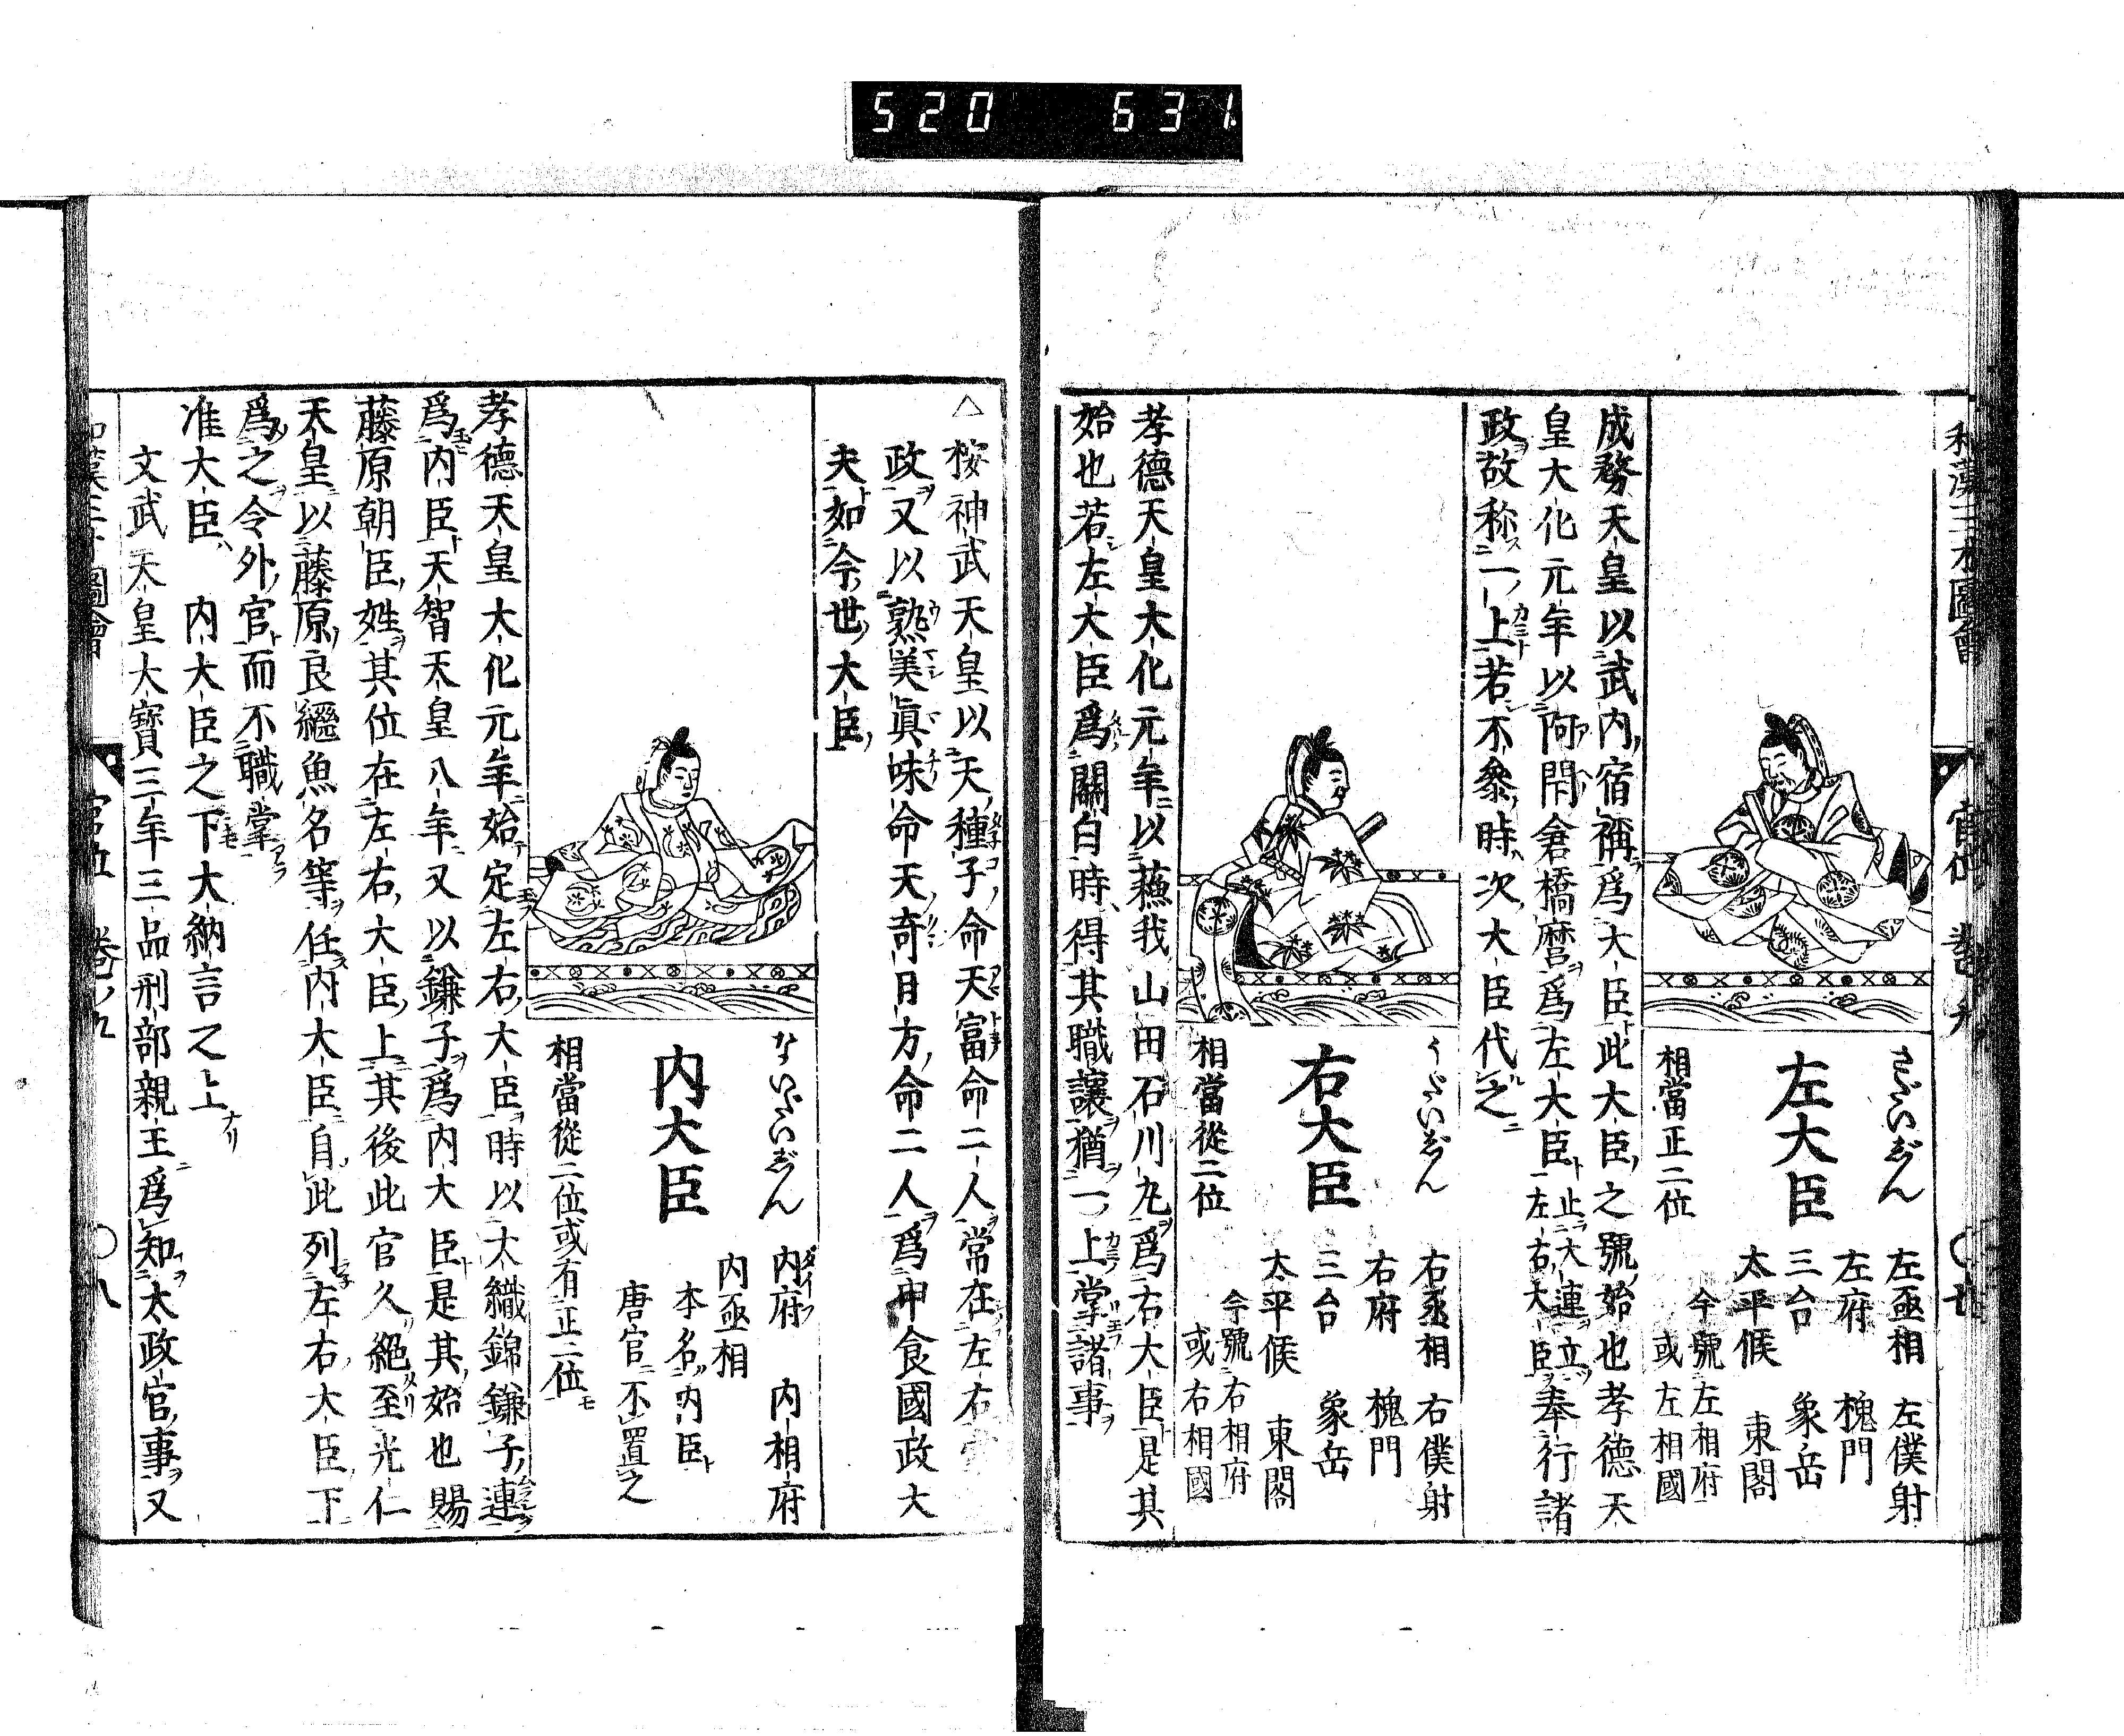 520 631
和漢三才圖會 官位 卷九
さだいじん
左大臣
左丞相 左僕射
左府 槐門
三台 象岳
太平候 東閣
今號左相府
或左相國
相當正二位
成務天皇以武内宿禰爲大臣此大臣之號始也孝德天
皇大化元年以阿閇倉橋麿爲左大臣止大連立左右大臣奉行諸
政故称一上若不參時次大臣代之
うだいじん
右大臣
右丞相 右僕射
右府 槐門
三台 象岳
太平候 東閣
今號右相府
或右相國
相當從二位
孝德天皇大化元年以蘓我山田石川丸爲右大臣是其
始也若左大臣爲關白時得其職讓猶一上掌諸事
△按神武天皇以天種子命天富命二人常在左右
政又以熟美眞味命天奇日方命二人爲申食國政大
夫如今世大臣
ないだいじん
内大臣
内府 内相府
内丞相
本名内臣
唐官不置之
相當從二位或有正二位
孝德天皇大化元年始定左右大臣時以大織錦鎌子連
爲内臣天智天皇八年又以鎌子爲内大臣是其始也賜
藤原朝臣姓其位在左右大臣上其後此官久絕至光仁
天皇以藤原良繼魚名等任内大臣自此列左右大臣下
爲之令外官而不職掌
准大臣 内大臣之下大納言之上
文武天皇大寶三年三品刑部親王爲知太政官事又
和漢三才圖會 官位 卷ノ九